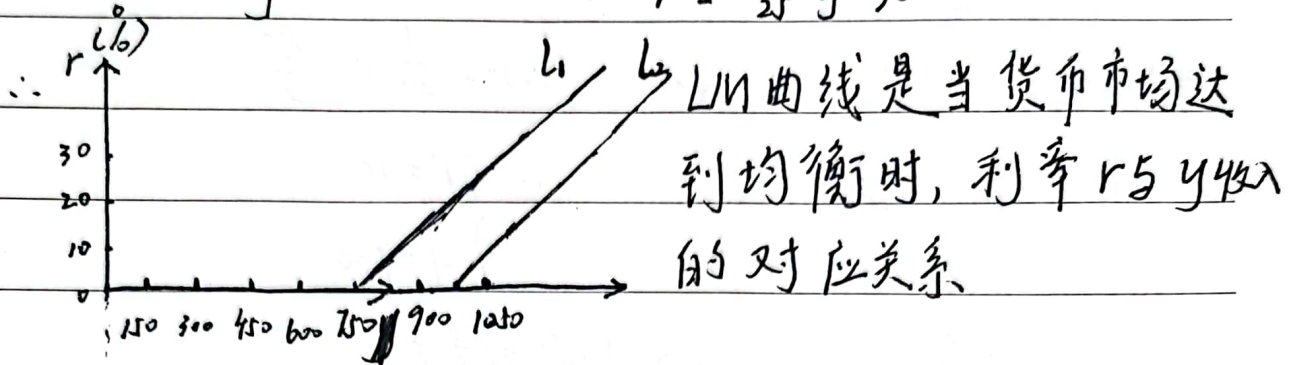 r (%)
∴
L₁ L₂
30
20
10
0
150 300 450 600 750 900 1050
LM曲线是当货币市场达
到均衡时,利率r与y收入
的对应关系